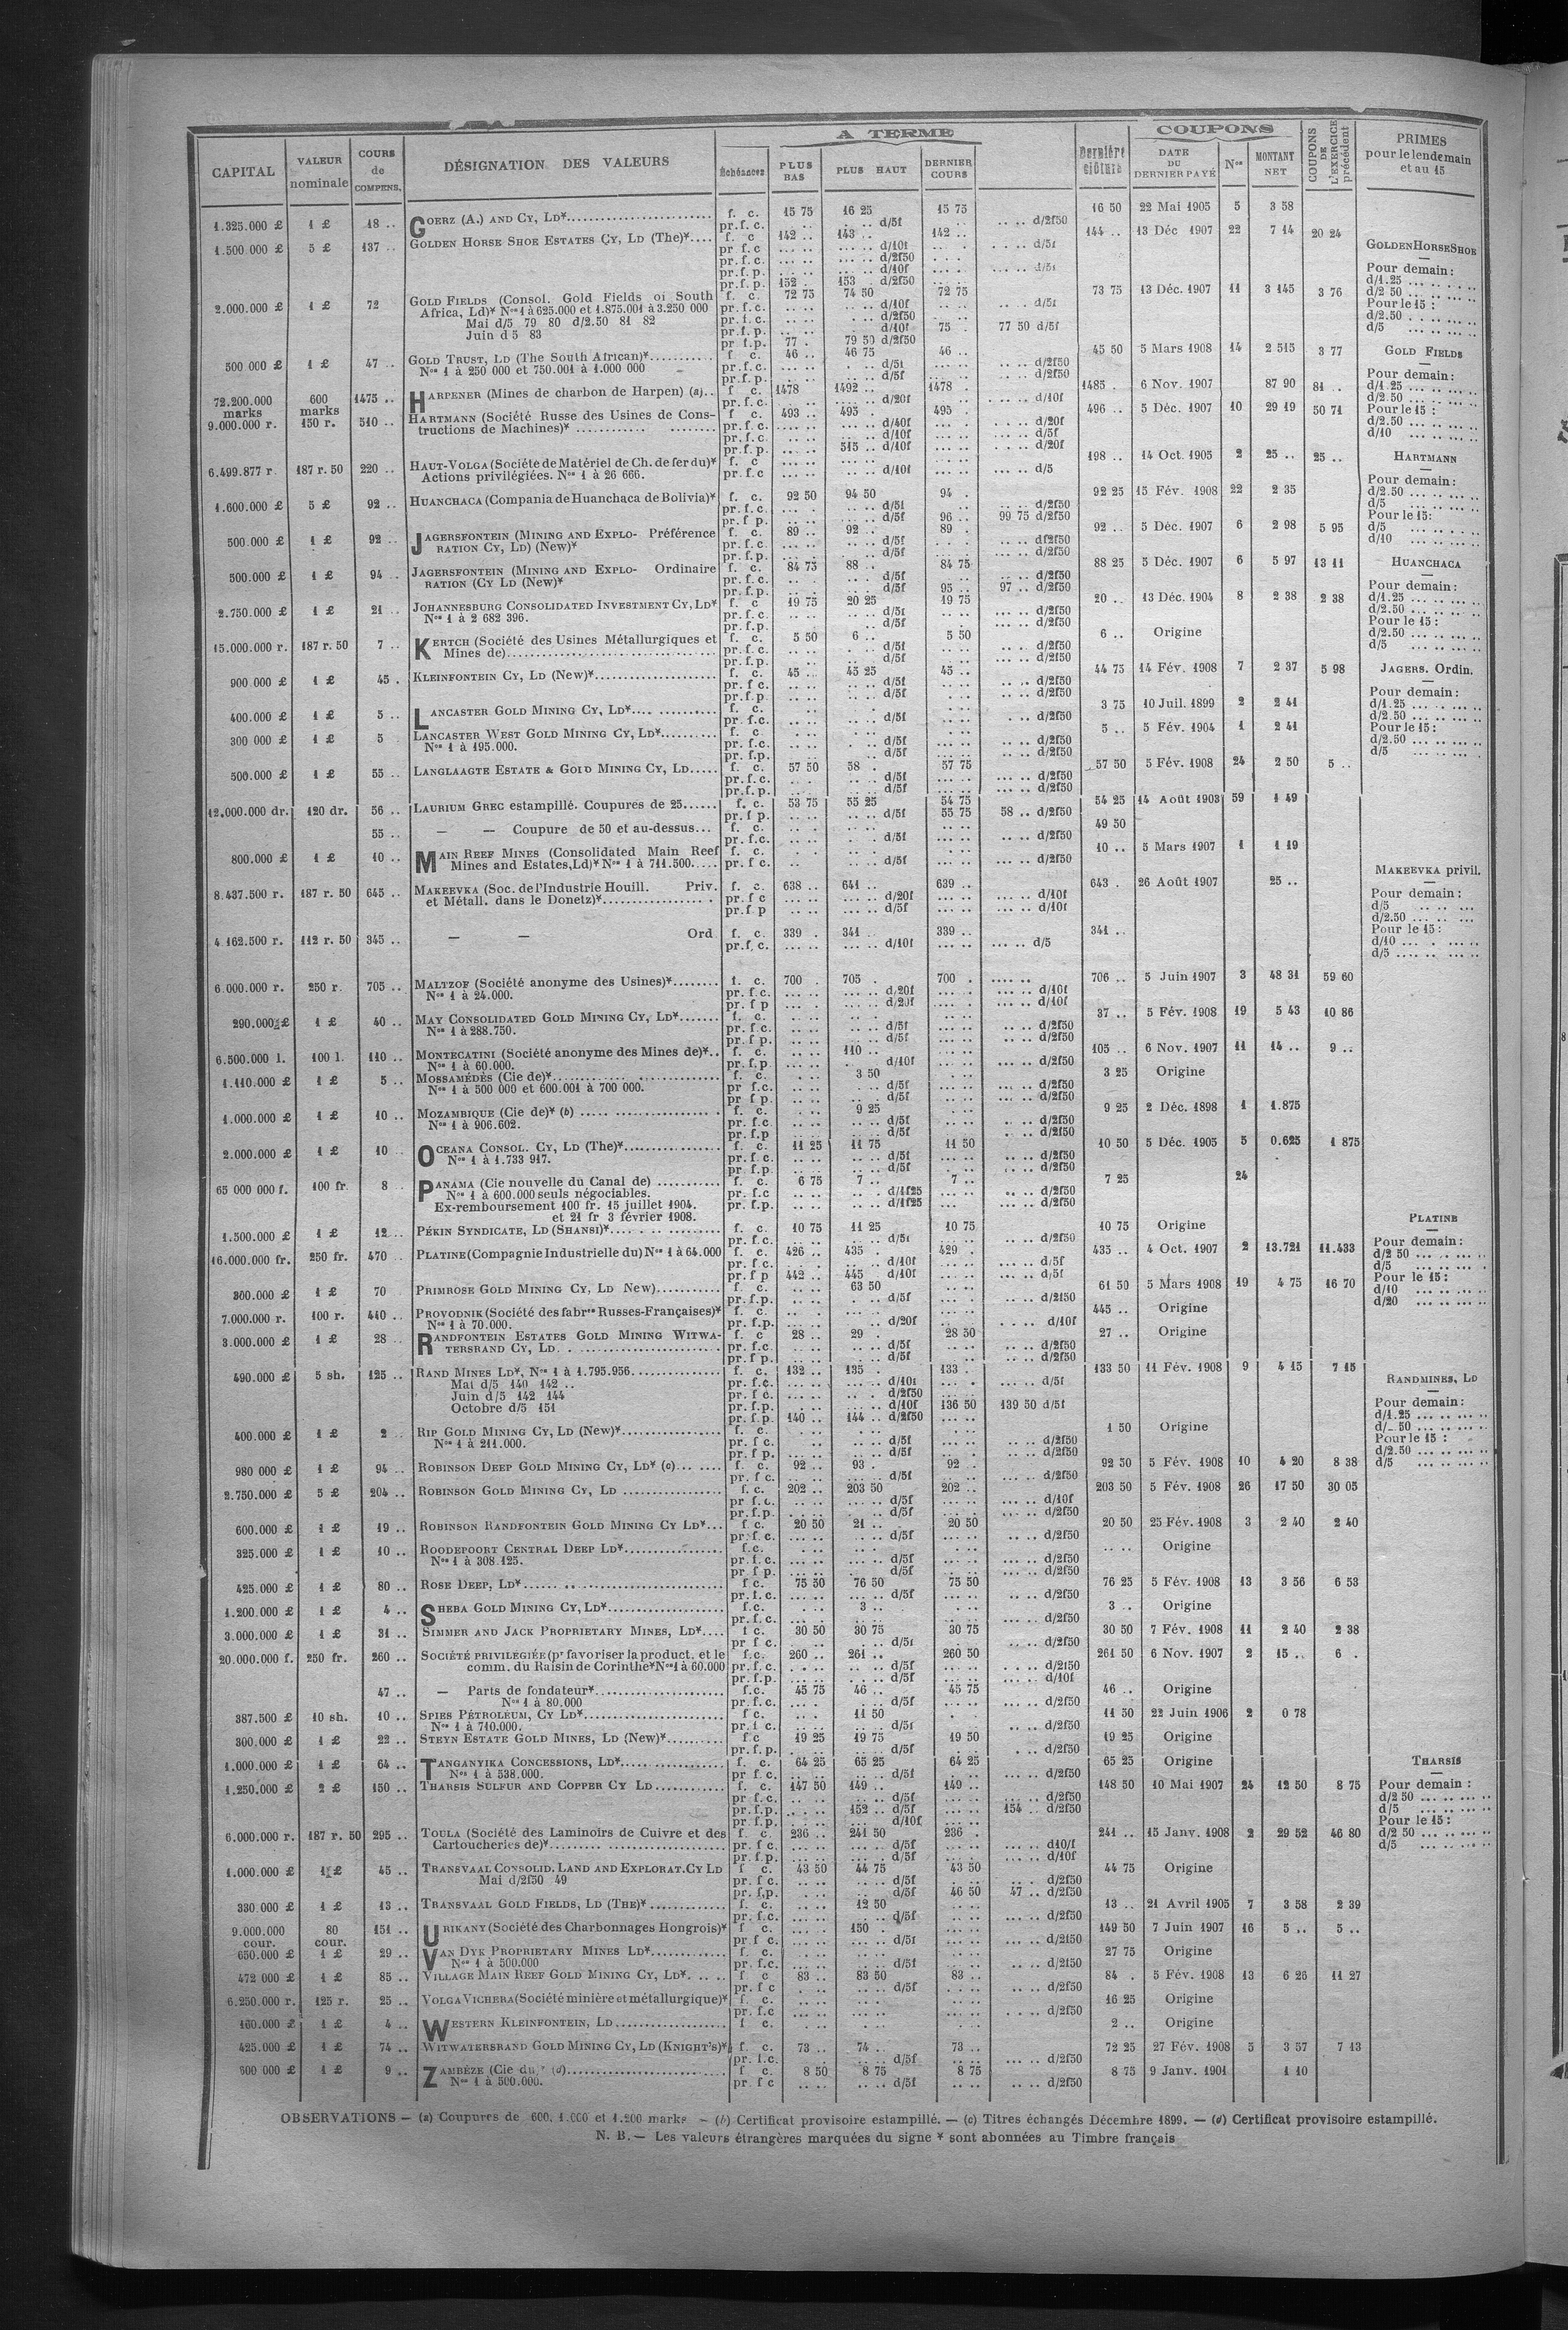 A TERME
COUPONS
CAPITAL VALEUR nominale COURS de COMPENS. DÉSIGNATION DES VALEURS Échéances PLUS BAS PLUS HAUT DERNIER COURS Dernière clôture DATE DU DERNIER PAYÉ Nos MONTANT NET COUPONS DE L'EXERCICE précédent PRIMES pour le lendemain et au 15
1.325.000 £ 1 £ 18 .. GOERZ (A.) AND CY, LD* f. c. 15 75 16 25 15 75 16 50 22 Mai 1905 5 3 58
pr. f. c. d/5f d/2f50
1.500.000 £ 5 £ 137 .. GOLDEN HORSE SHOE ESTATES CY, LD (The)* f. c 142 .. 143 .. 142 .. 144 .. 13 Déc 1907 22 7 14 20 24
pr. f. p. 152 . 153 . d/2f50
2.000.000 £ 1 £ 72 GOLD FIELDS (Consol. Gold Fields of South f. c. 72 75 74 50 72 75 73 75 13 Déc. 1907 11 3 145 3 76
Africa, Ld)* Nos 1 à 625.000 et 1.875.001 à 3.250 000
Mai d/5 79 80 d/2.50 81 82
Juin d 5 83
pr. f. p. d/10f 75 . 77 50 d/5f
pr f.p. 77 . 79 50 d/2f50
500 000 £ 1 £ 47 .. GOLD TRUST, LD (The South African)* f c. 46 .. 46 75 46 .. 45 50 5 Mars 1908 14 2 515 3 77
Nos 1 à 250 000 et 750.001 à 1.000 000
72.200.000 marks 600 marks 1475 .. HARPENER (Mines de charbon de Harpen) (a) f c. 1478 1492 .. 1478 . 1485 . 6 Nov. 1907 87 90 81 .
9.000.000 r. 150 r. 510 .. HARTMANN (Société Russe des Usines de Cons- f c. 493 .. 495 . 495 . 496 .. 5 Déc. 1907 10 29 19 50 71
tructions de Machines)*
pr. f. p. 515 .. d/10f d/20f
6.499.877 r. 187 r. 50 220 .. HAUT-VOLGA (Société de Matériel de Ch. de fer du)* f. c 198 .. 14 Oct. 1905 2 25 .. 25 ..
Actions privilégiées. Nos 1 à 26 666. pr. f.c d/10f d/5
1.600.000 £ 5 £ 92 .. HUANCHACA (Compania de Huanchaca de Bolivia)* f. c. 92 50 94 50 94 . 92 25 15 Fév. 1908 22 2 35
pr. f p. d/5f 96 .. 99 75 d/2f50
500.000 £ 1 £ 92 .. JAGERSFONTEIN (MINING AND EXPLO- Préférence f. c. 89 .. 92 .. 89 . 92 .. 5 Déc. 1907 6 2 98 5 95
RATION CY, LD) (New)*
500.000 £ 1 £ 94 .. JAGERSFONTEIN (MINING AND EXPLO- Ordinaire f. c. 84 75 88 .. 84 75 88 25 5 Déc. 1907 6 5 97 13 11
RATION (CY LD (New)*
pr. f.p. d/5f 95 .. 97 .. d/2f50
2.750.000 £ 1 £ 21 .. JOHANNESBURG CONSOLIDATED INVESTMENT CY, LD* f. c 19 75 20 25 19 75 20 .. 13 Déc. 1904 8 2 38 2 38
Nos 1 à 2 682 396.
15.000.000 r. 187 r. 50 7 .. KERTCH (Société des Usines Métallurgiques et f. c. 5 50 6 .. 5 50 6 .. Origine
Mines de)
900 000 £ 1 £ 45 . KLEINFONTEIN CY, LD (New)* f. c. 45 .. 45 25 45 .. 44 75 14 Fév. 1908 7 2 37 5 98
400.000 £ 1 £ 5 .. LANCASTER GOLD MINING CY, LD* f. c. 3 75 10 Juil. 1899 2 2 41
300 000 £ 1 £ 5 LANCASTER WEST GOLD MINING CY, LD* f. c 5 .. 5 Fév. 1904 1 2 41
Nos 1 à 195.000.
500.000 £ 1 £ 55 .. LANGLAAGTE ESTATE & GOLD MINING CY, LD f. c. 57 50 58 . 57 75 57 50 5 Fév. 1908 24 2 50 5 ..
12.000.000 dr. 120 dr. 56 .. LAURIUM GREC estampillé. Coupures de 25 f. c. 53 75 55 25 54 75 54 25 14 Août 1903 59 1 49
pr. f p. d/5f 55 75 58 .. d/2f50
55 .. — — Coupure de 50 et au-dessus f. c. 49 50
800.000 £ 1 £ 10 .. MAIN REEF MINES (Consolidated Main Reef f. c. 10 .. 5 Mars 1907 1 1 19
Mines and Estates, Ld)* Nos 1 à 711.500.
8.437.500 r. 187 r. 50 645 .. MAKEEVKA (Soc. de l'Industrie Houill. Priv. f. c. 638 .. 641 .. 639 .. 643 . 26 Août 1907 25 ..
et Métall. dans le Donetz)*
4.162.500 r. 112 r. 50 345 .. — — Ord f. c. 339 . 341 .. 339 .. 341 ..
pr. f. c. d/10f d/5
6.000.000 r. 250 r. 705 .. MALTZOF (Société anonyme des Usines)* f. c. 700 . 705 . 700 . 706 .. 5 Juin 1907 3 48 31 59 60
Nos 1 à 24.000.
290.000 £ 1 £ 40 .. MAY CONSOLIDATED GOLD MINING CY, LD* f. c. 37 .. 5 Fév. 1908 19 5 43 10 86
Nos 1 à 288.750.
6.500.000 l. 100 l. 110 .. MONTECATINI (Société anonyme des Mines de)* f. c. 110 .. 105 .. 6 Nov. 1907 11 14 .. 9 ..
Nos 1 à 60.000.
1.110.000 £ 1 £ 5 .. MOSSAMÉDÈS (Cie de)* f. c. 3 50 3 25 Origine
Nos 1 à 500 000 et 600.001 à 700 000.
1.000.000 £ 1 £ 10 .. MOZAMBIQUE (Cie de)* (b) f. c. 9 25 9 25 2 Déc. 1898 1 1.875
Nos 1 à 906.602.
2.000.000 £ 1 £ 10 OCEANA CONSOL. CY, LD (The)* f. c. 11 25 11 75 11 50 10 50 5 Déc. 1905 5 0.625 1 875
Nos 1 à 1.733 917.
65 000 000 f. 100 fr. 8 PANAMA (Cie nouvelle du Canal de) f. c. 6 75 7 .. 7 .. 7 25 24
Nos 1 à 600.000 seuls négociables.
Ex-remboursement 100 fr. 15 juillet 1904.
et 21 fr 3 février 1908.
1.500.000 £ 1 £ 12 .. PÉKIN SYNDICATE, LD (SHANSI)* f. c. 10 75 11 25 10 75 10 75 Origine
16.000.000 fr. 250 fr. 470 .. PLATINE (Compagnie Industrielle du) Nos 1 à 64.000 f. c. 426 .. 435 . 429 . 435 .. 4 Oct. 1907 2 13.721 11.433
pr f p 442 .. 445 d/10f d/5f
300.000 £ 1 £ 70 PRIMROSE GOLD MINING CY, LD New) f. c. 63 50 61 50 5 Mars 1908 19 4 75 16 70
7.000.000 r. 100 r. 440 .. PROVODNIK (Société des fabres Russes-Françaises)* f. c. 445 .. Origine
Nos 1 à 70.000. pr. f.p. d/20f d/10f
3.000.000 £ 1 £ 28 .. RANDFONTEIN ESTATES GOLD MINING WITWA- f. c 28 .. 29 . 28 50 27 .. Origine
TERSRAND CY, LD.
490.000 £ 5 sh. 125 .. RAND MINES LD*, Nos 1 à 1.795.956 f. c. 132 .. 135 . 133 .. 133 50 11 Fév. 1908 9 4 15 7 15
Mai d/5 140 142 ..
Juin d/5 142 144
Octobre d/5 151 pr. f.p. d/10f 136 50 139 50 d/5f
pr. f.p. 140 .. 144 .. d/2f50
400.000 £ 1 £ 2 .. RIP GOLD MINING CY, LD (New)* f. c. 1 50 Origine
Nos 1 à 211.000.
980 000 £ 1 £ 94 .. ROBINSON DEEP GOLD MINING CY, LD* (c) f. c. 92 .. 93 . 92 . 92 50 5 Fév. 1908 10 4 20 8 38
2.750.000 £ 5 £ 204 .. ROBINSON GOLD MINING CY, LD f. c. 202 .. 203 50 202 .. 203 50 5 Fév. 1908 26 17 50 30 05
600.000 £ 1 £ 19 .. ROBINSON RANDFONTEIN GOLD MINING CY LD* f c. 20 50 21 .. 20 50 20 50 25 Fév. 1908 3 2 40 2 40
325.000 £ 1 £ 10 .. ROODEPOORT CENTRAL DEEP LD* f.c. Origine
Nos 1 à 308.125.
425.000 £ 1 £ 80 .. ROSE DEEP, LD* f c. 75 50 76 50 75 50 76 25 5 Fév. 1908 13 3 56 6 53
1.200.000 £ 1 £ 4 .. SHEBA GOLD MINING CY, LD* f.c. 3 .. 3 .. Origine
3.000.000 £ 1 £ 31 .. SIMMER AND JACK PROPRIETARY MINES, LD* f c. 30 50 30 75 30 75 30 50 7 Fév. 1908 11 2 40 2 38
20.000.000 f. 250 fr. 260 .. SOCIÉTÉ PRIVILÉGIÉE (pr favoriser la product. et le f.c. 260 .. 261 .. 260 50 261 50 6 Nov. 1907 2 15 .. 6 .
comm. du Raisin de Corinthe* Nos 1 à 60.000
47 .. — Parts de fondateur* f.c. 45 75 46 .. 45 75 46 .. Origine
Nos 1 à 80.000
387.500 £ 10 sh. 10 .. SPIES PÉTROLEUM, CY LD* f c. 11 50 11 50 22 Juin 1906 2 0 78
Nos 1 à 710.000.
300.000 £ 1 £ 22 .. STEYN ESTATE GOLD MINES, LD (New)* f.c 19 25 19 75 19 50 19 25 Origine
1.000.000 £ 1 £ 64 .. TANGANYIKA CONCESSIONS, LD* f. c. 64 25 65 25 64 25 65 25 Origine
Nos 1 à 538.000.
1.250.000 £ 2 £ 150 .. THARSIS SULFUR AND COPPER CY LD f. c. 147 50 149 .. 149 .. 148 50 10 Mai 1907 24 12 50 8 75
pr. f.p. 152 .. d/5f 154 .. d/2f50
6.000.000 r. 187 r. 50 295 .. TOULA (Société des Laminoirs de Cuivre et des f. c. 236 .. 241 50 236 . 241 .. 15 Janv. 1908 2 29 52 46 80
Cartoucheries de)*
1.000.000 £ 1 £ 45 .. TRANSVAAL CONSOLID. LAND AND EXPLORAT. CY LD f c. 43 50 44 75 43 50 44 75 Origine
Mai d/2f50 49
pr. f.p. d/5f 46 50 47 .. d/2f50
330 000 £ 1 £ 13 .. TRANSVAAL GOLD FIELDS, LD (THE)* f. c. 12 50 13 .. 21 Avril 1905 7 3 58 2 39
9.000.000 cour. 80 cour. 151 .. URIKANY (Société des Charbonnages Hongrois)* f c. 150 . 149 50 7 Juin 1907 16 5 .. 5 ..
650.000 £ 1 £ 29 .. VAN DYK PROPRIETARY MINES LD* f. c. 27 75 Origine
Nos 1 à 500.000
472 000 £ 1 £ 85 .. VILLAGE MAIN REEF GOLD MINING CY, LD* f c 83 .. 83 50 83 .. 84 . 5 Fév. 1908 13 6 25 11 27
6.250.000 r. 125 r. 25 .. VOLGA VICHERA (Société minière et métallurgique)* f. c. 16 25 Origine
160.000 £ 1 £ 4 .. WESTERN KLEINFONTEIN, LD f c. 2 .. Origine
425.000 £ 1 £ 74 .. WITWATERSRAND GOLD MINING CY, LD (KNIGHT'S)* f. c. 73 .. 74 .. 73 .. 72 25 27 Fév. 1908 5 3 57 7 13
300 000 £ 1 £ 9 .. ZAMBÈZE (Cie du) (d) f c. 8 50 8 75 8 75 8 75 9 Janv. 1901 1 10
Nos 1 à 500.000. pr. f c d/5f d/2f50
GOLDEN HORSE SHOE
Pour demain :
d/1.25
d/2 50
Pour le 15 :
d/2.50
d/5
GOLD FIELDS
Pour demain :
d/1.25
d/2.50
Pour le 15 :
d/2.50
d/10
HARTMANN
Pour demain :
d/2.50
d/5
Pour le 15 :
d/5
d/10
HUANCHACA
Pour demain :
d/1.25
d/2.50
Pour le 15 :
d/2.50
d/5
JAGERS. Ordin.
Pour demain :
d/1.25
d/2.50
Pour le 15 :
d/2.50
d/5
MAKEEVKA privil.
Pour demain :
d/5
d/2.50
Pour le 15 :
d/10
d/5
PLATINE
Pour demain :
d/2 50
d/5
Pour le 15 :
d/10
d/20
RANDMINES, LD
Pour demain :
d/1.25
Pour le 15 :
d/2.50
d/5
THARSIS
Pour demain :
d/2 50
d/5
Pour le 15 :
d/2 50
d/5
OBSERVATIONS — (a) Coupures de 600. 1.000 et 1.200 marks — (b) Certificat provisoire estampillé. — (c) Titres échangés Décembre 1899. — (d) Certificat provisoire estampillé.
N. B. — Les valeurs étrangères marquées du signe * sont abonnées au Timbre français